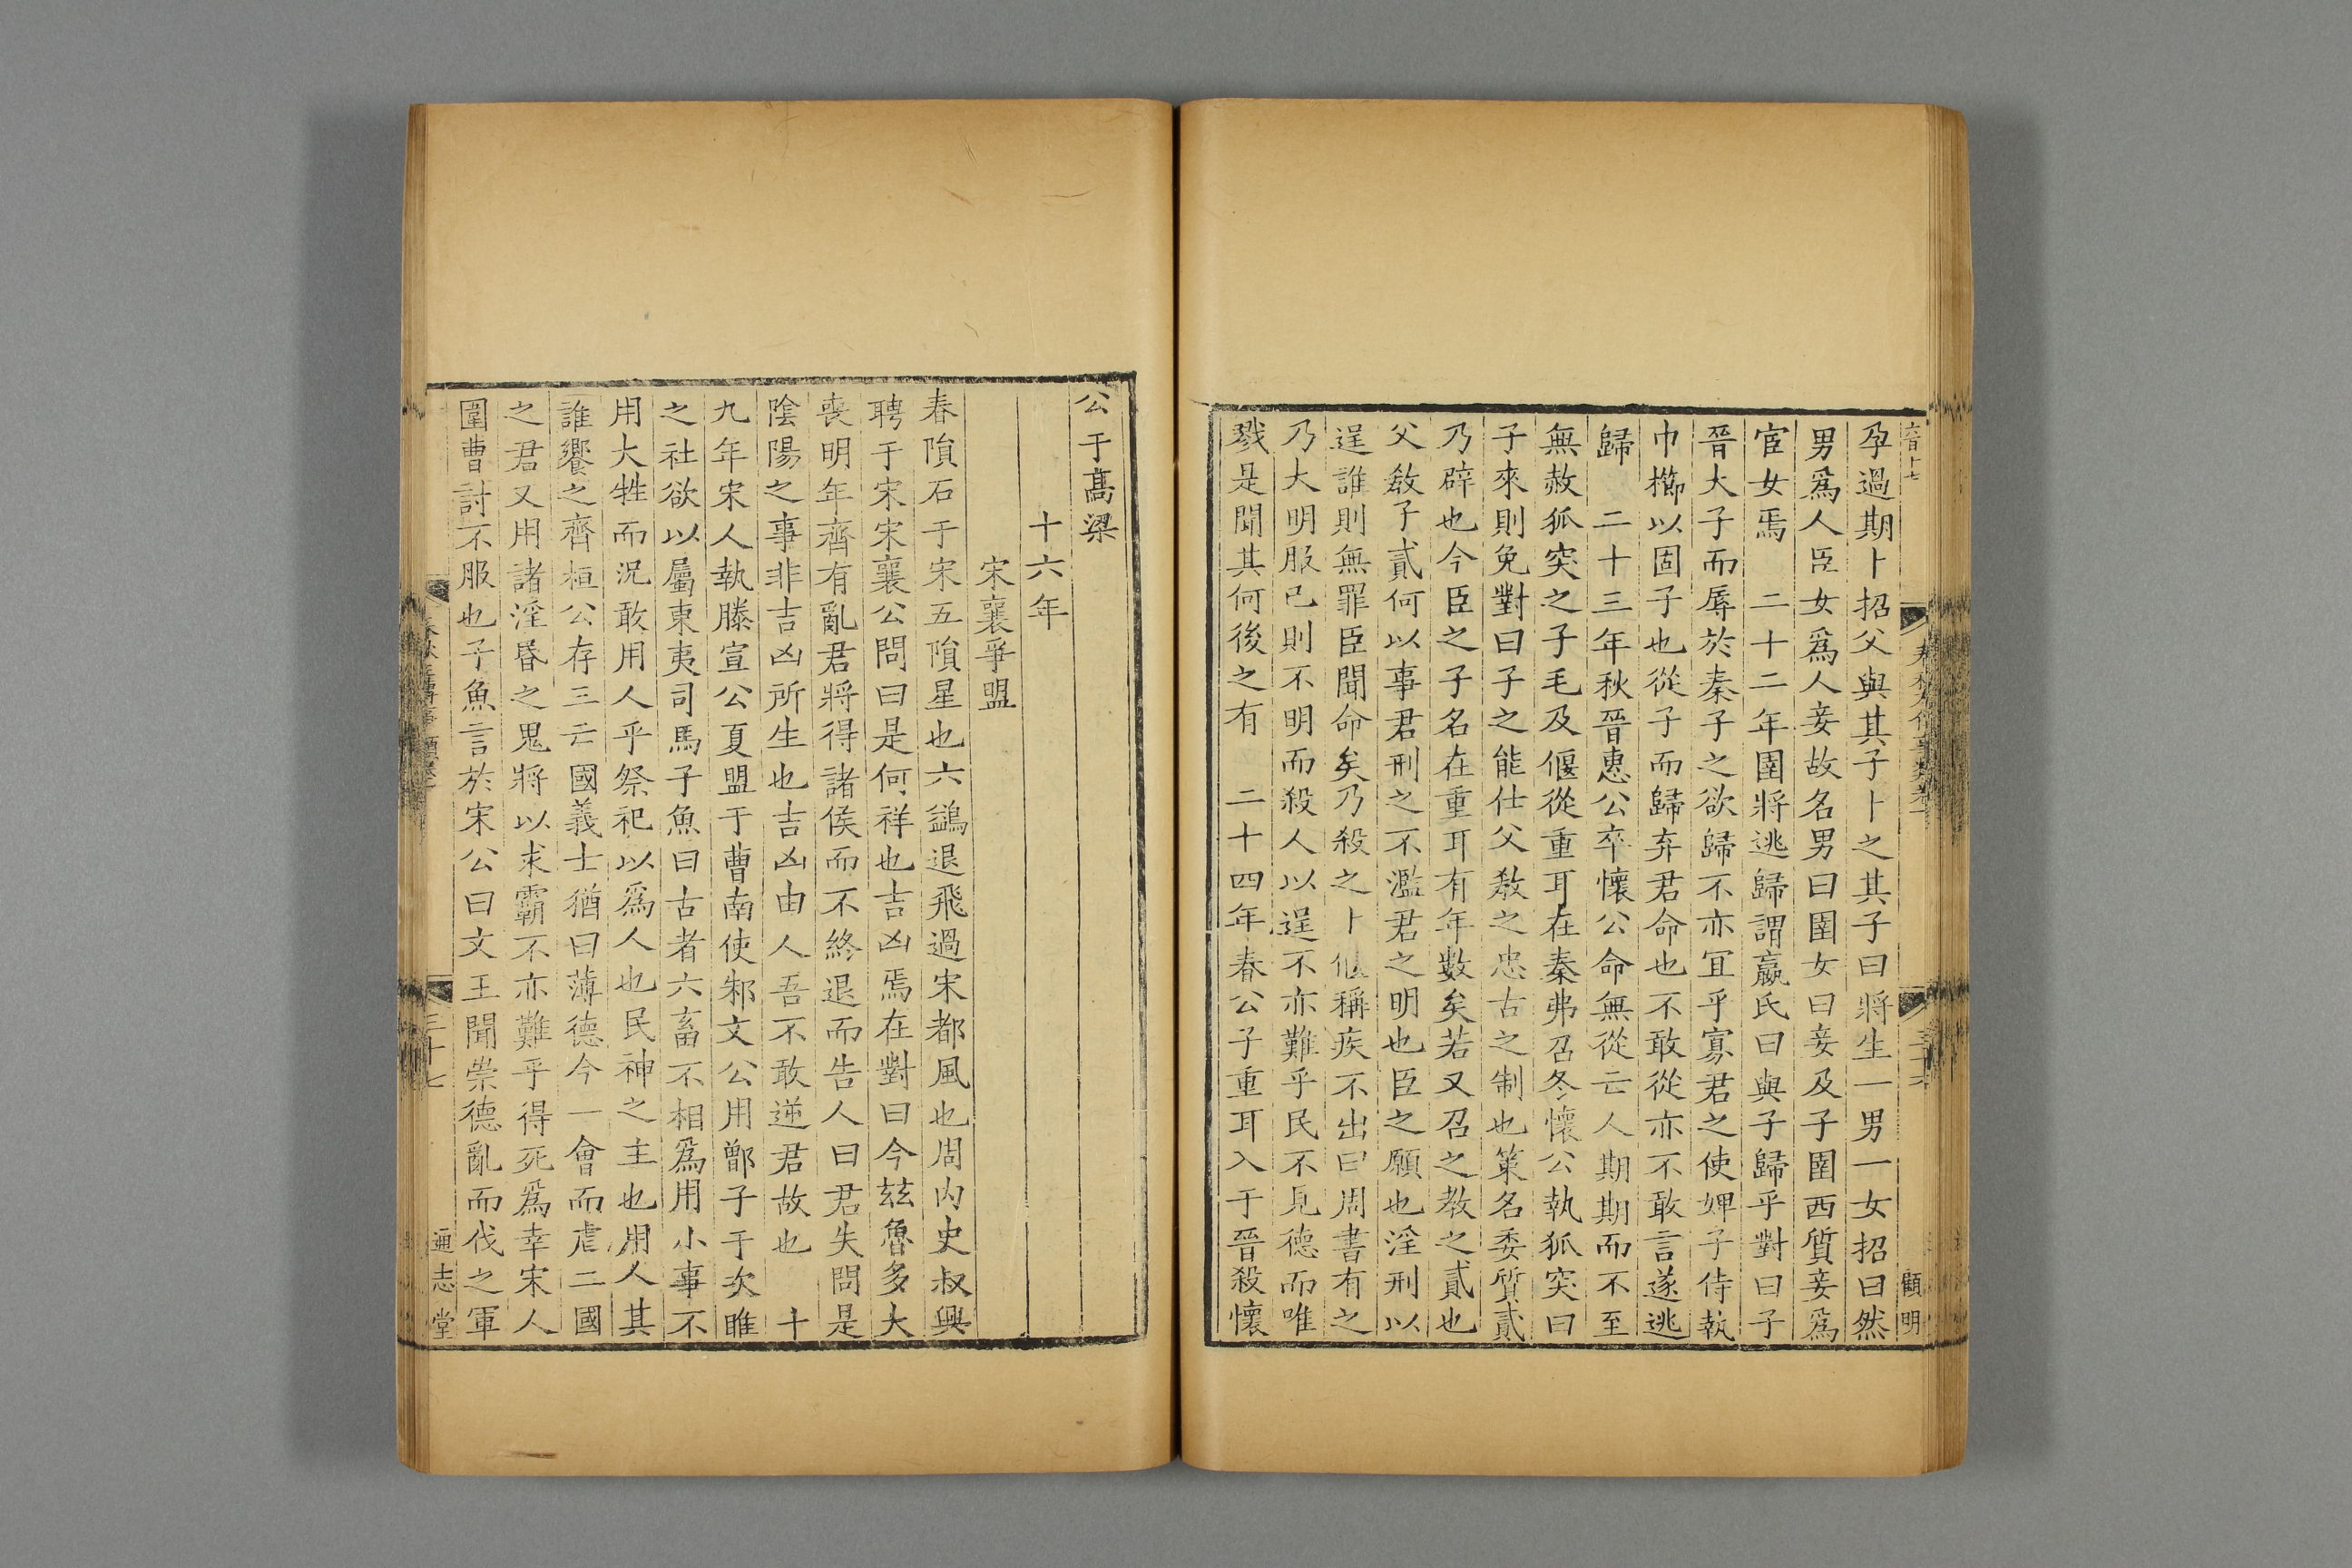 孕過期卜招父與其子卜之其子曰將生一男一女招曰然
男爲人臣女爲人妾故名男曰圉女曰妾及子圉西質妾爲
宦女焉　二十二年圉將逃歸謂嬴氏曰與子歸乎對曰子
晉大子而辱於秦子之欲歸不亦宜乎寡君之使婢子侍執
巾櫛以固子也從子而歸弃君命也不敢從亦不敢言遂逃
歸　二十三年秋晉惠公卒懷公命無從亡人期期而不至
無赦狐突之子毛及偃從重耳在秦弗召冬懷公執狐突曰
子來則免對曰子之能仕父敎之忠古之制也策名委質貳
乃辟也今臣之子名在重耳有年數矣若又召之教之貳也
父敎子貳何以事君刑之不濫君之明也臣之願也淫刑以
逞誰則無罪臣聞命矣乃殺之卜偃稱疾不出曰周書有之
乃大明服己則不明而殺人以逞不亦難乎民不見德而唯
戮是聞其何後之有　二十四年春公子重耳入于晉殺懷
顧明
公于髙梁
十六年
宋襄爭盟
春隕石于宋五隕星也六鷁退飛過宋都風也周内史叔興
聘于宋宋襄公問曰是何祥也吉凶焉在對曰今茲魯多大
喪明年齊有亂君將得諸侯而不終退而告人曰君失問是
陰陽之事非吉凶所生也吉凶由人吾不敢逆君故也　十
九年宋人執滕宣公夏盟于曹南使邾文公用鄫子于次睢
之社欲以屬東夷司馬子魚曰古者六畜不相爲用小事不
用大牲而況敢用人乎祭祀以爲人也民神之主也用人其
誰饗之齊桓公存三亡國義士猶曰薄德今一會而虐二國
之君又用諸淫昏之鬼將以求霸不亦難乎得死爲幸宋人
圍曹討不服也子魚言於宋公曰文王聞崇德亂而伐之軍
三十七
通志堂